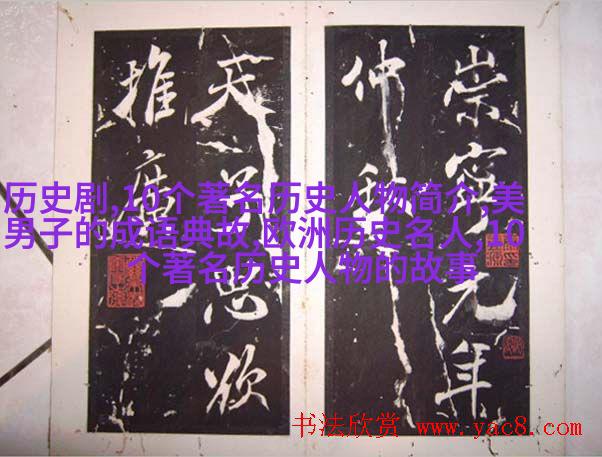 崇寧元年
仲秋
思欲
推廣
历史剧,10个著名历史人物简介,美
男子的成语典故,欧洲历史名人,10
个著名历史人物的故事
书法欣赏 www.yac8.com